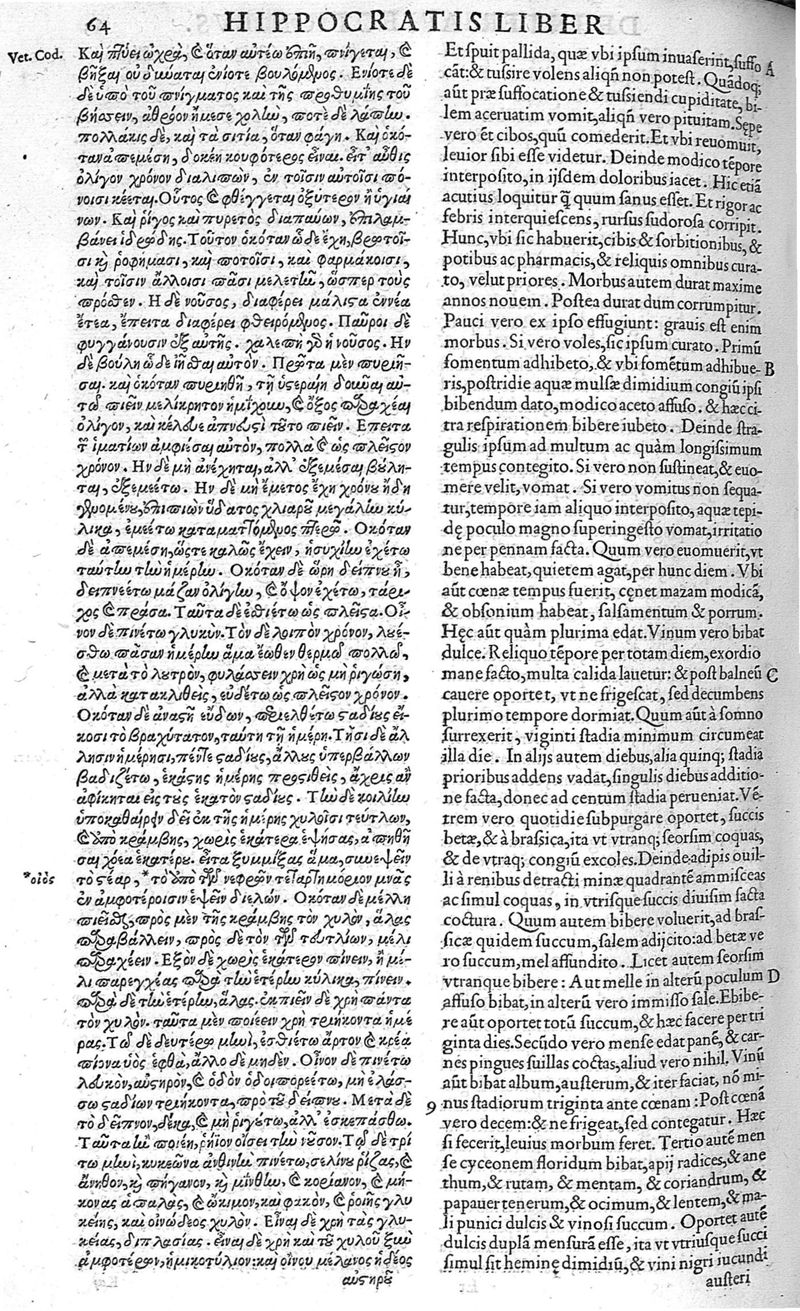 64 HIPPOCRATIS LIBER
Vet. Cod.
Καὶ πτύει ὠχρὰ, καὶ ὅταν αὐτέῳ ἐπίῃ, πνίγεται, καὶ
βῆξαι οὐ δύναται ἐνίοτε βουλόμενος. Ενίοτε δὲ
δὲ ὑπὸ τοῦ πνίγματος καὶ τῆς προθυμίης τοῦ
βήσσειν, ἀθρόον ἤμεσε χολὴν, ποτὲ δὲ λάπην.
πολλάκις δὲ, καὶ τὰ σιτία, ὅταν φάγῃ. Καὶ ὁκό-
ταν ἀπεμέσῃ, δοκέει κουφότερος εἶναι. εἶτ' αὖθις
ὀλίγον χρόνον διαλιπὼν, ἐν τοῖσιν αὐτοῖσι πό-
νοισι κέεται. Οὗτος καὶ φθέγγεται ὀξύτερον ἢ ὑγιαί
νων. Καὶ ῥῖγος καὶ πυρετὸς διαπαύων, ἐπιλαμ-
βάνει ἱδρώδης. Τοῦτον ὁκόταν ὧδε ἔχῃ, βρωτοῖ-
σι καὶ ῥοφήμασι, καὶ ποτοῖσι, καὶ φαρμάκοισι,
καὶ τοῖσιν ἄλλοισι πᾶσι μελετᾷν, ὥσπερ τοὺς
πρόσθεν. Η δὲ νοῦσος, διαφέρει μάλιστα ἐννέα
ἔτεα, ἔπειτα διαφέρει φθειρόμενος. Παῦροι δὲ
φυγγάνουσιν ἐξ αὐτῆς. χαλεπὴ γὰρ ἡ νοῦσος. Ην
δὲ βούλῃ ὧδε ἰῆσθαι αὐτόν. Πρῶτα μὲν πυριῆ-
σαι. καὶ ὁκόταν πυριηθῇ, τῇ ὑστεραίῃ δοῦναι αὐ-
τῷ πιεῖν μελίκρητον ἡμίχουν, καὶ ὄξος παραχέαι
ὀλίγον, καὶ κέλευε ἀπνευστὶ τοῦτο πιεῖν. Επειτα
τῶν ἱματίων ἀμφιέσαι αὐτὸν, πολλὰ καὶ ὡς πλεῖστον
χρόνον. Ην δὲ μὴ ἀνέχηται, ἀλλ' ἐξεμέσαι βούλη-
ται, ἐξεμεέτω. Ην δὲ μὴ ἔμετος ἔχῃ χρόνου ἤδη
γενομένου, ἐπιπιὼν ὕδατος χλιαροῦ μεγάλην κύ-
λικα, ἐμεέτω καταματτόμενος πτερῷ. Οκόταν
δὲ ἀπεμέσῃ, ὥστε καλῶς ἔχειν, ἡσυχίην ἐχέτω
ταύτην τὴν ἡμέρην. Οκόταν δὲ ὥρη δείπνου ᾖ,
δειπνεέτω μάζαν ὀλίγην, καὶ ὄψον ἐχέτω, τάρι-
χος καὶ πράσα. Ταῦτα δὲ ἐσθιέτω ὡς πλεῖστα. Οἶ-
νον δὲ πινέτω γλυκύν. Τὸν δὲ λοιπὸν χρόνον, λουέ-
σθω πᾶσαν ἡμέρην ἅμα ἕωθεν θερμῷ πολλῷ,
καὶ μετὰ τὸ λουτρὸν, φυλάσσειν χρὴ ὡς μὴ ῥιγώσῃ,
ἀλλὰ κατακλιθεὶς, εὑδέτω ὡς πλεῖστον χρόνον.
Οκόταν δὲ ἀναστῇ εὕδων, περιελθέτω σταδίους εἴ-
κοσι τὸ βραχύτατον, ταύτῃ τῇ ἡμέρῃ. Τῇσι δὲ ἄλ
λησιν ἡμέρῃσι, πέντε σταδίους, ἄλλους ὑπερβάλλων
βαδιζέτω, ἑκάστης ἡμέρης προστιθεὶς, ἄχρις ἂν
ἀφίκηται εἰς τοὺς ἑκατὸν σταδίους. Τὴν δὲ κοιλίην
ὑποκαθαίρειν δεῖ ἑκάστης ἡμέρης χυλοῖσι τεύτλων,
καὶ ἀπὸ κράμβης, χωρὶς ἑκάτερα ἑψήσας, ἀπηθῆ
σαι χόεα ἑκατέρου. εἶτα ξυμμίξας ἅμα, συνεψεῖν
*οἰὸς
τὸ στέαρ, *τὸ ἀπὸ τῶν νεφρῶν τεταρτημόριον μνᾶς
ἐν ἀμφοτέροισιν ἕψειν διελών. Οκόταν δὲ μέλλῃ
πιεῖσθαι, πρὸς μὲν τῆς κράμβης τὸν χυλὸν, ἅλας
παραβάλλειν, πρὸς δὲ τὸν τῶν τευτλίων, μέλι
παραχέειν. Εξὸν δὲ χωρὶς ἑκάτερον πίνειν, ἢ μέ-
λι παρεγχέας παρὰ τὴν ἑτέρην κύλικα, πίνειν.
παρὰ δὲ τὴν ἑτέρην, ἅλας. ἐκπιεῖν δὲ χρὴ πάντα
τὸν χυλόν. ταῦτα μὲν ποιέειν χρὴ τριήκοντα ἡμέ
ρας. Τῷ δὲ δευτέρῳ μηνὶ, ἐσθιέτω ἄρτον καὶ κρέα
πίονα ὑὸς ἑφθὰ, ἄλλο δὲ μηδέν. Οἶνον δὲ πινέτω
λευκὸν, αὐστηρὸν, καὶ ὁδὸν ὁδοιπορεέτω, μὴ ἐλάσ-
σω σταδίων τριήκοντα, πρὸ τοῦ δείπνου. Μετὰ δὲ
τὸ δεῖπνον, δέκα, καὶ μὴ ῥιγούτω, ἀλλ' ἐσκεπάσθω.
Ταῦτα ἢν ποιέῃ, ῥήϊον οἴσει τὴν νοῦσον. Τῷ δὲ τρί
τῳ μηνὶ, κυκεῶνα ἀνθινὸν πινέτω, σελίνου ῥίζας, καὶ
ἄνηθον, καὶ πήγανον, καὶ μίνθην, καὶ κορίανον, καὶ μή-
κονας ἁπαλὰς, καὶ ὤκιμον, καὶ φακὸν, καὶ ῥοιῆς γλυ
κείης, καὶ οἰνώδεος χυλόν. Εἶναι δὲ χρὴ τὰς γλυ-
κείας, διπλασίας. εἶναι δὲ χρὴ καὶ τοῦ χυλοῦ ξυν
ἀμφοτέρων, ἡμικοτύλιον: καὶ οἴνου μέλανος ἡδέος
αὐστηροῦ
Et spuit pallida, quæ vbi ipsum inuaserint, suffo
A
cāt: & tussire volens aliqñ non potest. Quādoq;
aūt præ suffocatione & tussiendi cupiditate, bi-
lem aceruatim vomit, aliqñ vero pituitam. Sępe
vero ēt cibos, quū comederit. Et vbi reuomuit,
leuior sibi esse videtur. Deinde modico tēpore
interposito, in ijsdem doloribus iacet. Hic etiā
acutius loquitur q̃ quum sanus esset. Et rigor ac
febris interquiescens, rursus sudorosa corripit.
Hunc, vbi sic habuerit, cibis & sorbitionibus, &
potibus ac pharmacis, & reliquis omnibus cura-
to, velut priores. Morbus autem durat maxime
annos nouem. Postea durat dum corrumpitur.
Pauci vero ex ipso effugiunt: grauis est enim
morbus. Si vero voles, sic ipsum curato. Primū
fomentum adhibeto, & vbi fomētum adhibue-
B
ris, postridie aquæ mulsæ dimidium congiū ipsi
bibendum dato, modico aceto affuso. & hæc ci-
tra respirationem bibere iubeto. Deinde stra-
gulis ipsum ad multum ac quàm longissimum
tempus contegito. Si vero non sustineat, & euo-
mere velit, vomat. Si vero vomitus non sequa-
tur, tempore iam aliquo interposito, aquæ tepi-
dę poculo magno superingesto vomat, irritatio
ne per pennam facta. Quum vero euomuerit, vt
bene habeat, quietem agat, per hunc diem. Vbi
aūt cœnæ tempus fuerit, cęnet mazam modicā,
& obsonium habeat, salsamentum & porrum.
Hęc aūt quàm plurima edat. Vinum vero bibat
dulce. Reliquo tēpore per totam diem, exordio
mane facto, multa calida lauetur: & post balneū
C
cauere oportet, vt ne frigescat, sed decumbens
plurimo tempore dormiat. Quum aūt à somno
surrexerit, viginti stadia minimum circumeat
illa die. In alijs autem diebus, alia quinq; stadia
prioribus addens vadat, singulis diebus additio-
ne facta, donec ad centum stadia perueniat. Vē-
trem vero quotidie subpurgare oportet, succis
betæ, & à brassica, ita vt vtranq; seorsim coquas,
& de vtraq; congiū excoles. Deinde adipis ouil-
li à renibus detracti minæ quadrantē ammisceas
ac simul coquas, in vtrisque succis diuisim facta
coctura. Quum autem bibere voluerit, ad bras-
sicæ quidem succum, salem adijcito: ad betæ ve
ro succum, mel affundito. Licet autem seorsim
vtranque bibere: Aut melle in alterū poculum
D
affuso bibat, in alterū vero immisso sale. Ebibe-
re aūt oportet totū succum, & hæc facere per tri
ginta dies. Secūdo vero mense edat panē, & car-
nes pingues suillas coctas, aliud vero nihil. Vinū
aūt bibat album, austerum, & iter faciat, nō mi-
nus stadiorum triginta ante cœnam: Post cœnā
9
vero decem: & ne frigeat, sed contegatur. Hæc
si fecerit, leuius morbum feret. Tertio autē men
se cyceonem floridum bibat, apij radices, & ane
thum, & rutam, & mentam, & coriandrum, &
papauer tenerum, & ocimum, & lentem, & ma-
li punici dulcis & vinosi succum. Oportet autē
dulcis duplā mensurā esse, ita vt vtriusque succi
simul sit heminę dimidiū, & vini nigri iucundi
austeri